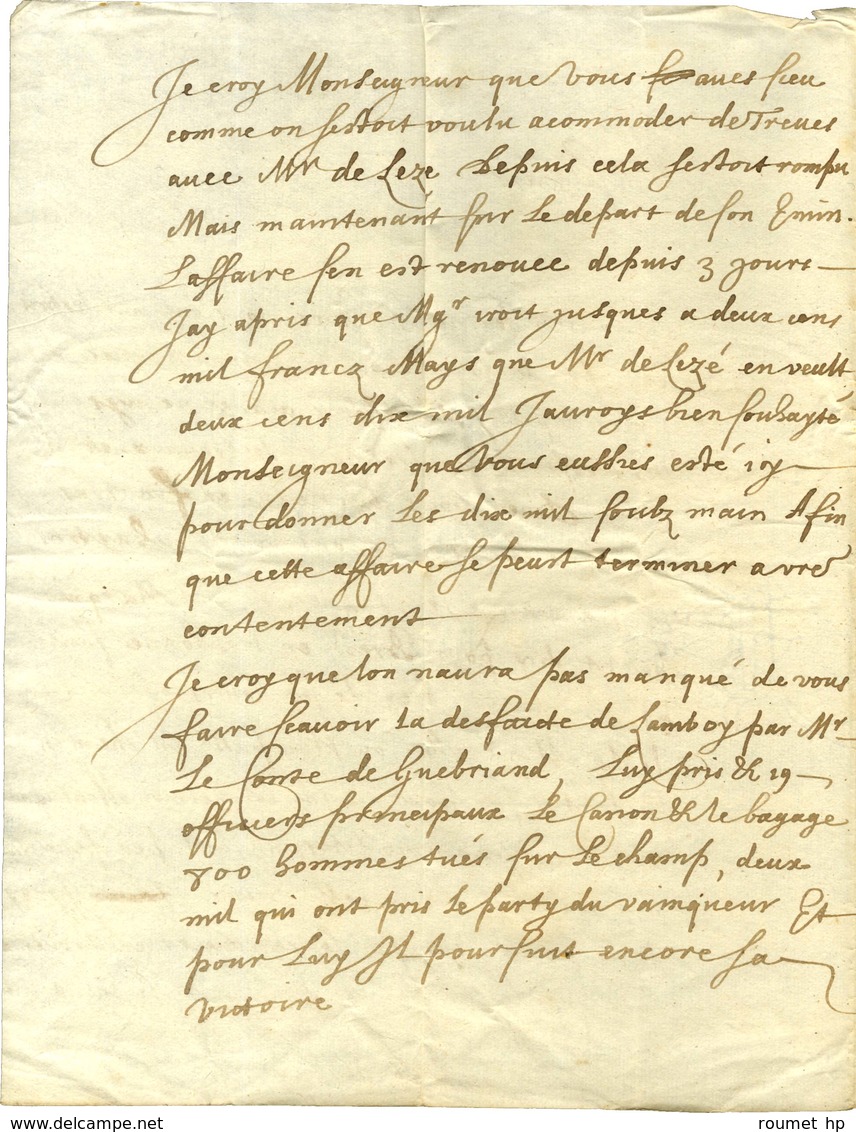 Je croy Monseigneur que vous aves sceu
comme on sestoit voulu acommoder de Treves
avec Mr de Lezé Depuis cela sestoit rompu
Mais maintenant sur le depart de son Emin.
Laffaire sen est renouee depuis 3 jours
Jay apris que Mgr iroit jusques a deux cens
mil francz Mays que Mr de Lezé en veult
deux cens dix mil Jauroys bien souhayté
Monseigneur que vous eussies esté icy
pour donner les dix mil soubz main Afin
que cette affaire se peust terminer a vre
contentement
Je croy que lon naura pas manqué de vous
faire scavoir la desfaicte de Lamboy par Mr
Le Conte de Guebriand, Luy pris & 19
officiers principaux Le Canon & le bagage
800 hommes tués sur le champ, deux
mil qui ont pris le party du vainqueur Et
pour Luy Il poursuit encore sa
victoire
roumet hp